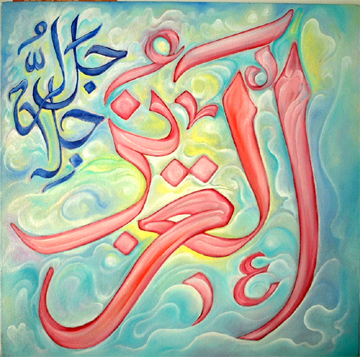 العزيز
جل جلاله